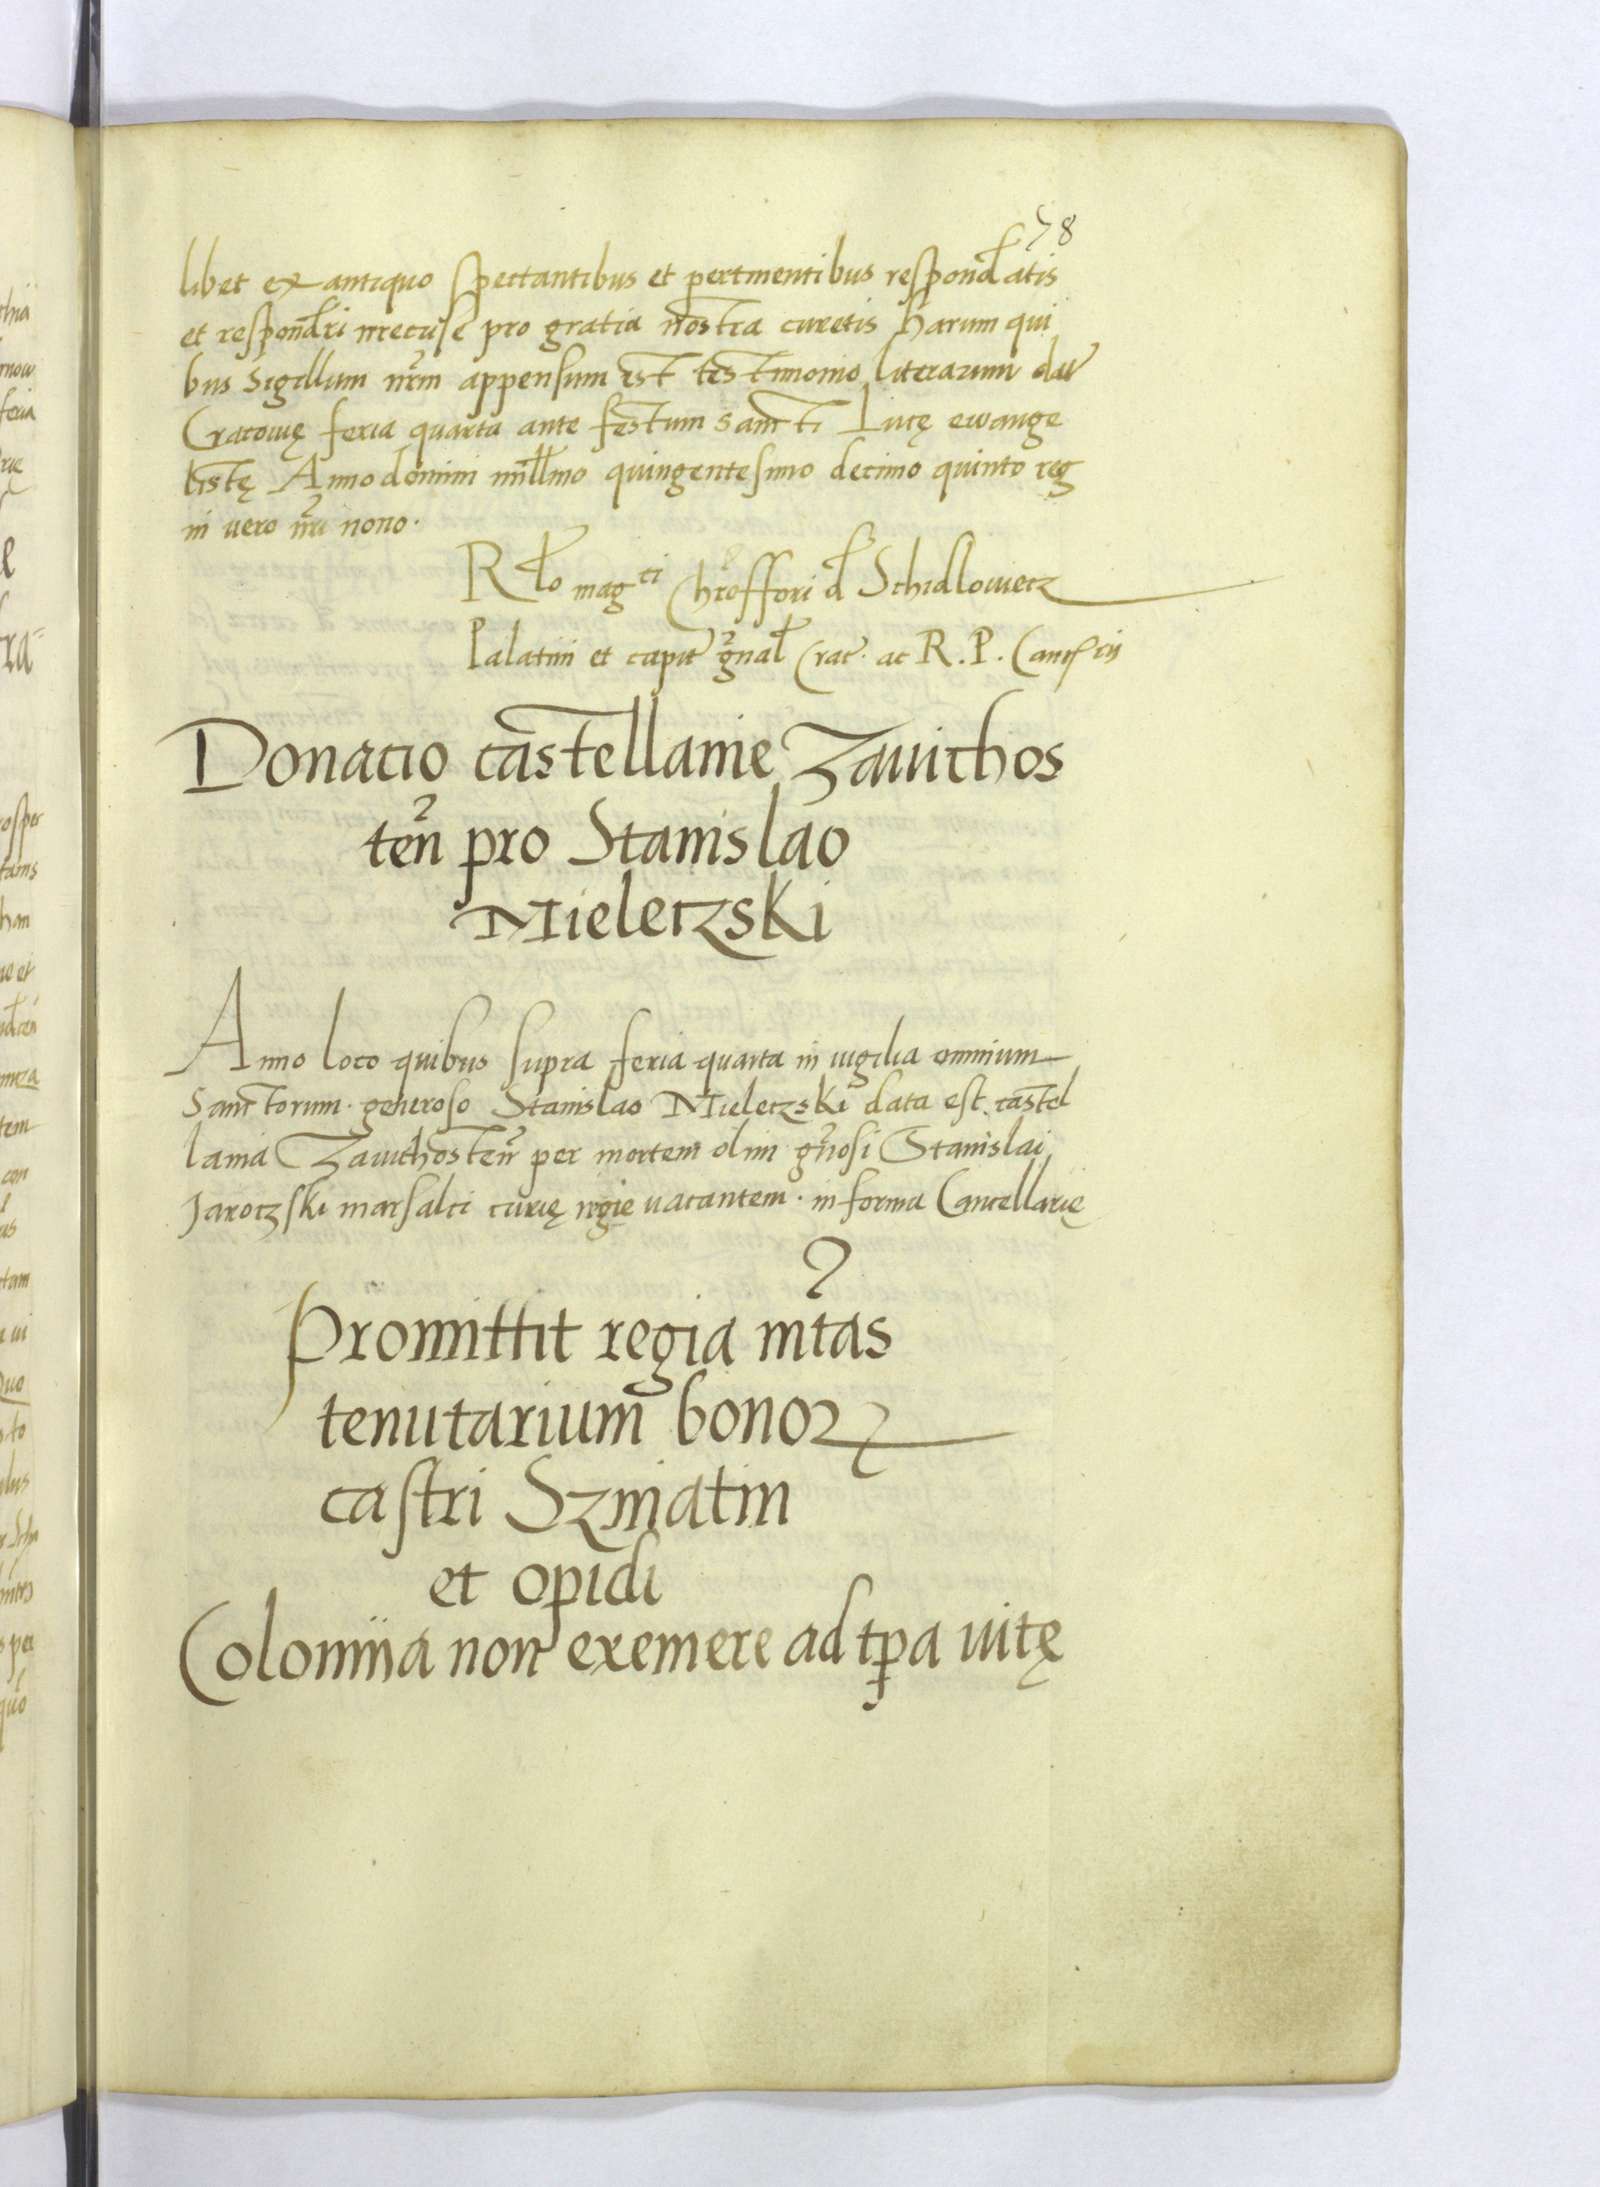 78
libet ex antiquo spectantibus et pertinentibus respondatis
et respondri irrecuse pro gratia nostra curetis Harum qui
bus Sigillum nrm appensum est testimonio literarum dat
Cracowię feria quarta ante festum sancti Lucę ewange
listę Anno domini millmo quingentesimo decimo quinto reg
ni vero nri nono.
Rlo magci Chroffori d Schidlowietz
Palatini et capit gnal Crac. ac R. P. Cancrii
Donatio castellanie Zawichos
ten pro Stanislao
Mieletzski
Anno loco quibus supra feria quarta in vigilia omnium
Sanctorum. generoso Stanislao Mieletzski data est castel
lania Zawichosten per mortem olim gnosi Stanislai
Jarotzski marsalci curię rgie vacantem. in forma Cancellarię
Promittit regia mtas
tenutarium bonoꝝ
castri Szniatin
et opidi
Colomiia non exemere ad tpa vitę